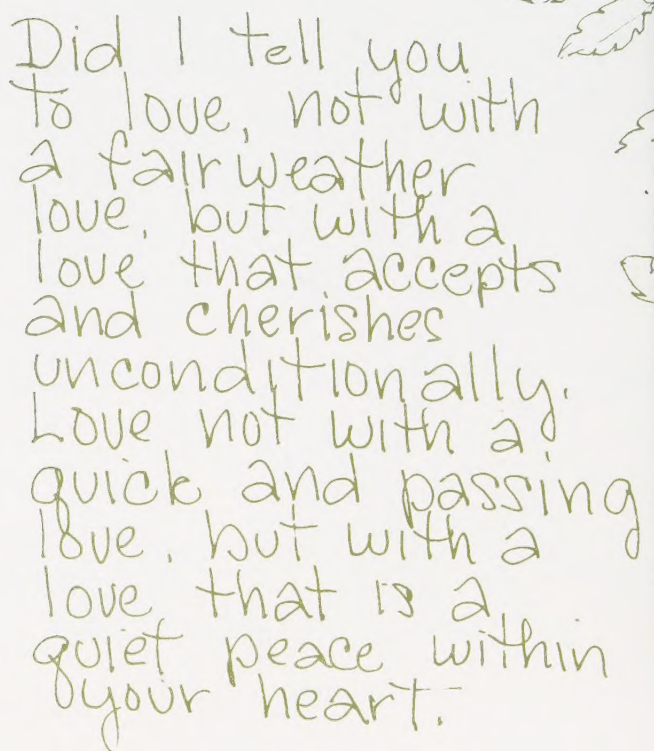 Did I tell you
to love, not with
a fairweather
love, but with a
love that accepts
and cherishes
unconditionally.
Love not with a
quick and passing
love, but with a
love that is a
quiet peace within
your heart.